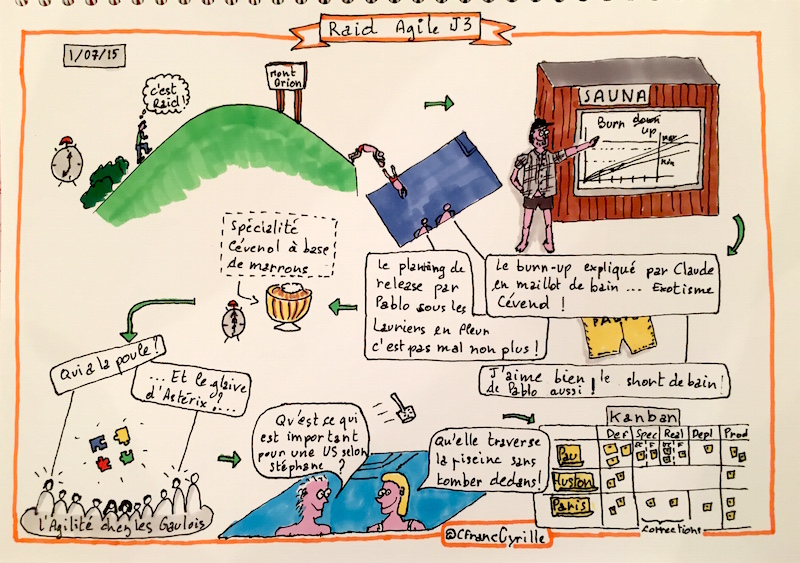 Raid Agile J3
1/07/15
c'est
Raid!
Mont
Orion
SAUNA
Burn down
up
MAX
MIN
Spécialité
Cévenol à base
de marrons
Le planning de
release par
Pablo sous les
Lauriers en fleur
c'est pas mal non plus!
Le burn-up expliqué par Claude
en maillot de bain ... Exotisme
Cévenol!
PABLO
J'aime bien le short de bain
de Pablo aussi!
Qui a la poule?
... Et le glaive
d'Astérix? ...
L'Agilité chez les Gaulois
Qu'est ce qui
est important
pour une US selon
Stéphane?
Qu'elle traverse
la piscine sans
tomber dedans!
Kanban
Def Spec Real Depl Prod
Pau
Huston
Paris
corrections
@CFrancCyrille